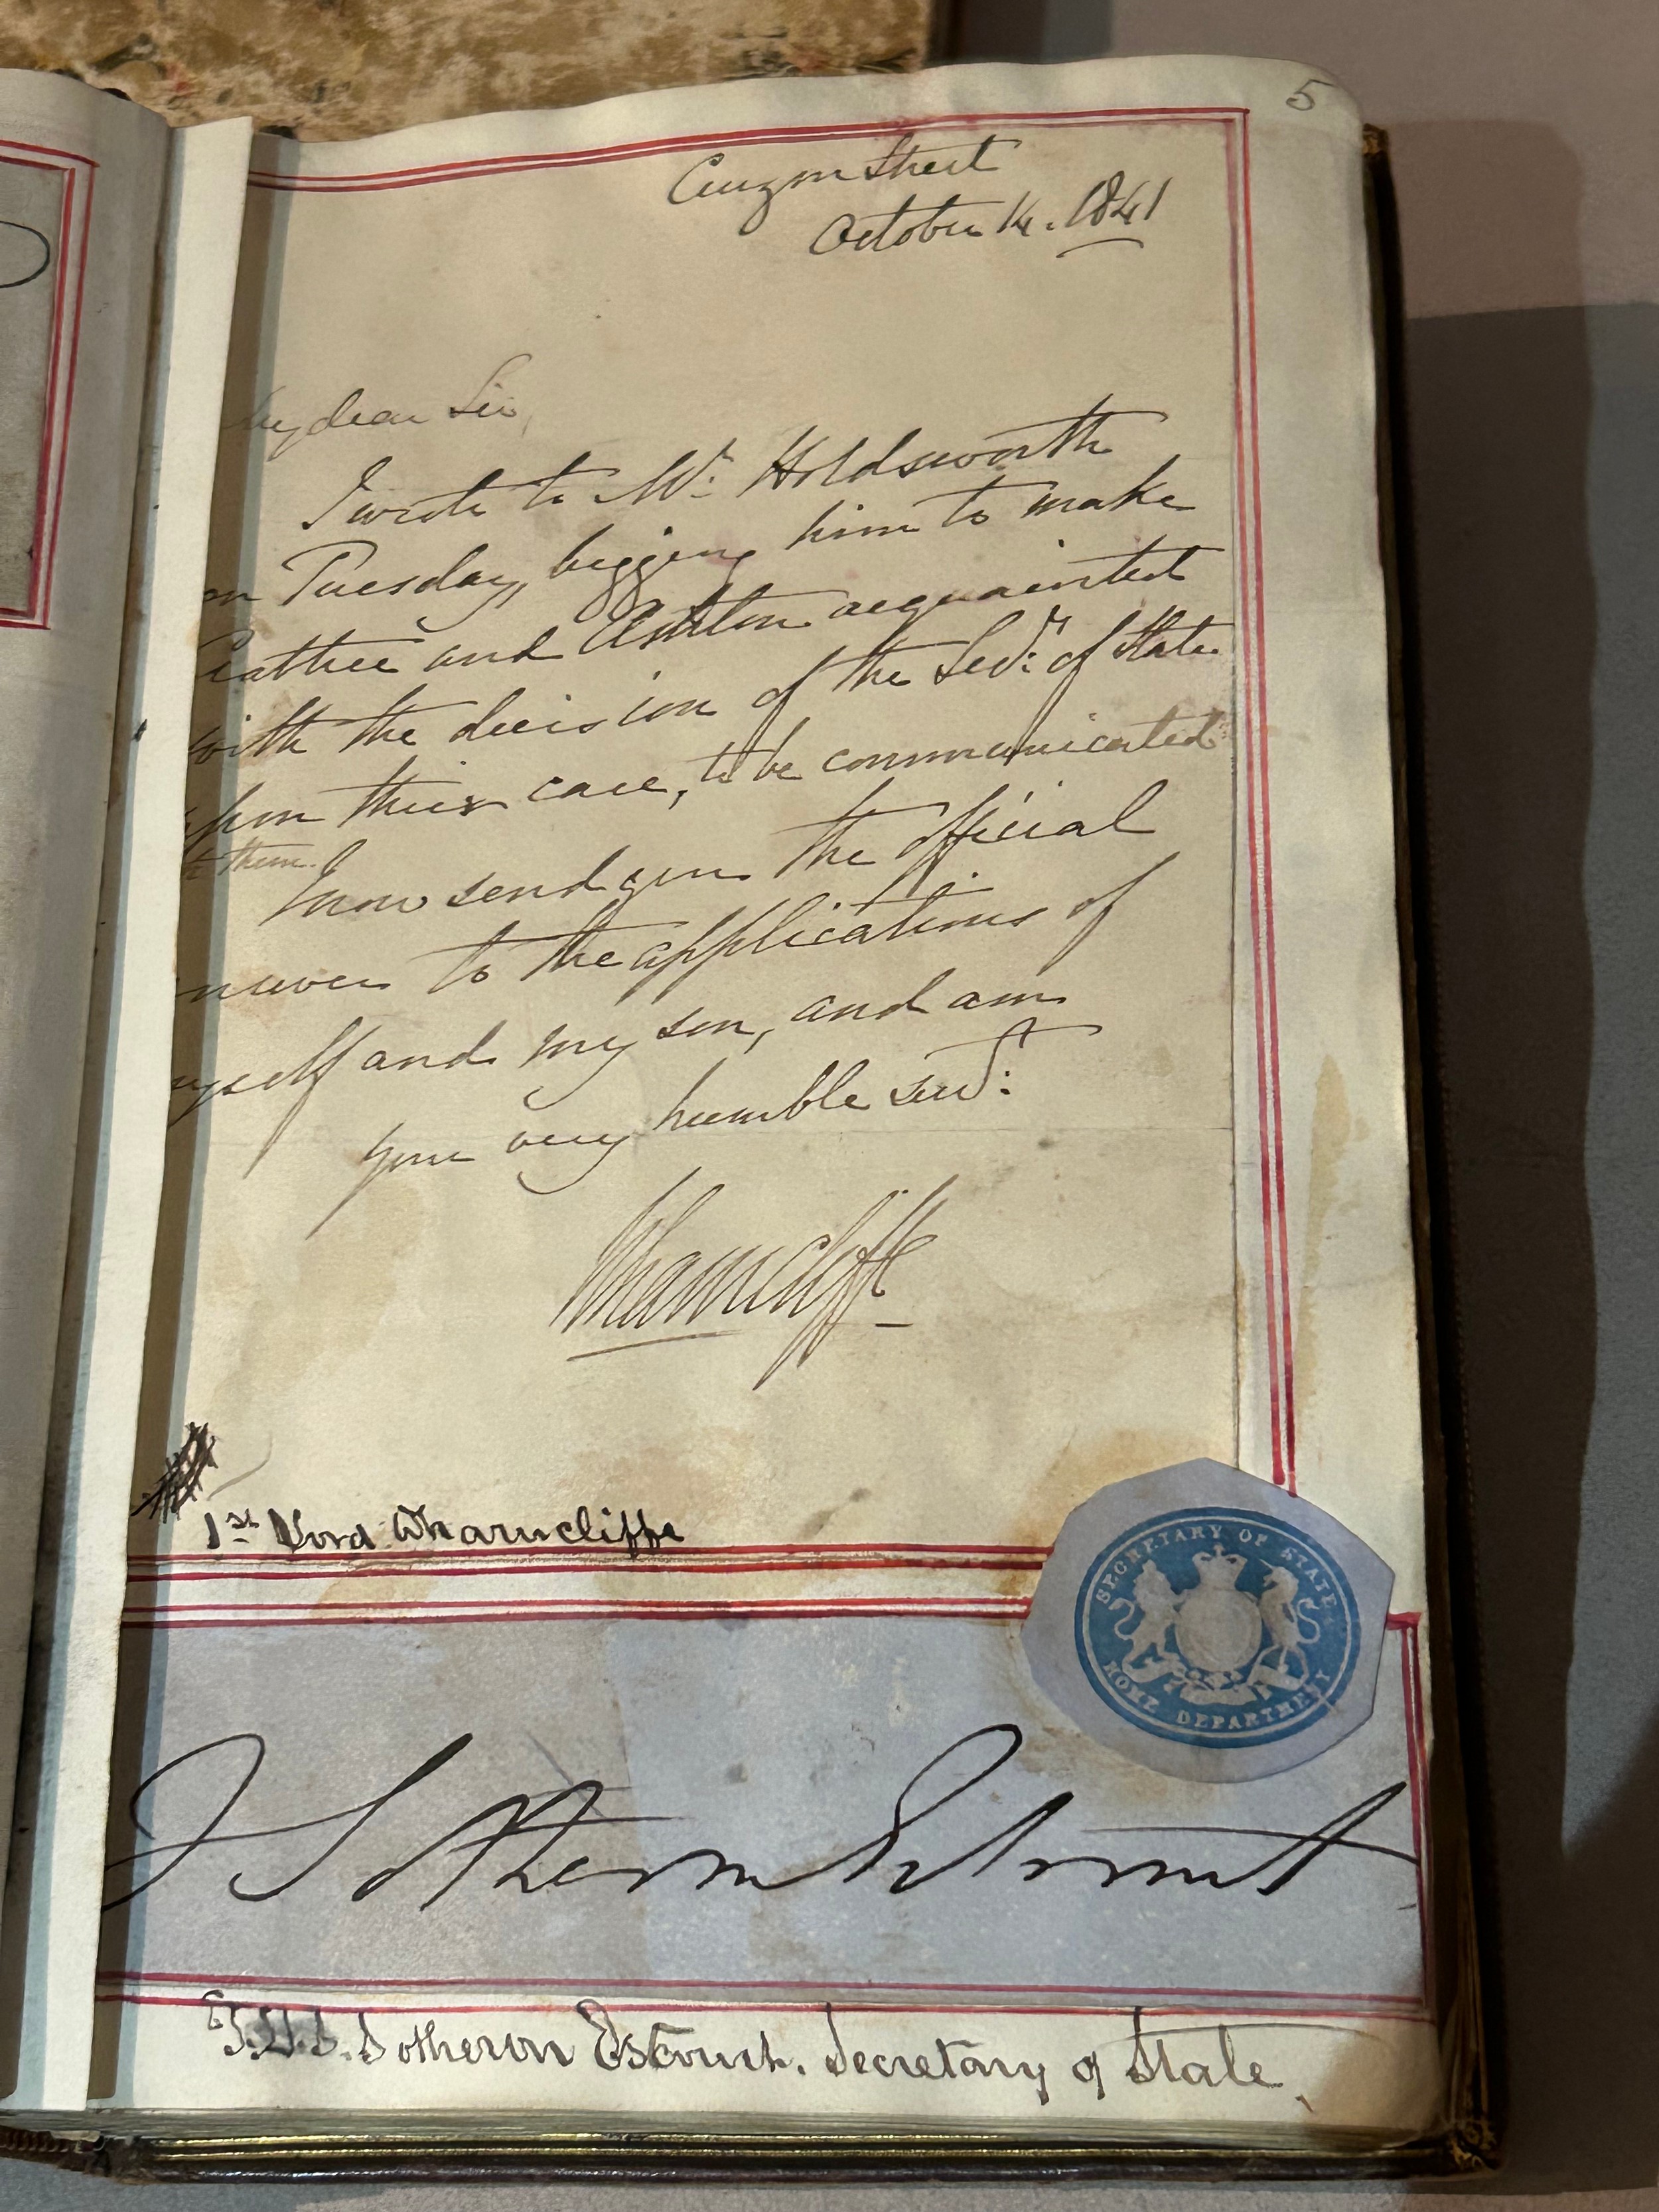 5
Curzon Street
October 14. 1841
My dear Sir,
I wrote to Mr. Holdsworth
on Tuesday, begging him to make
and acquainted
with the decision of the Secy. of State
upon their case, to be communicated
to them.
I now send you the official
answer to the applications of
myself and my son, and am
your very humble servt.
Wharncliffe
1st Lord Wharncliffe
SECRETARY OF STATE
HOME DEPARTMENT
J Sotheron Estcourt
Sotheron Estcourt. Secretary of State.